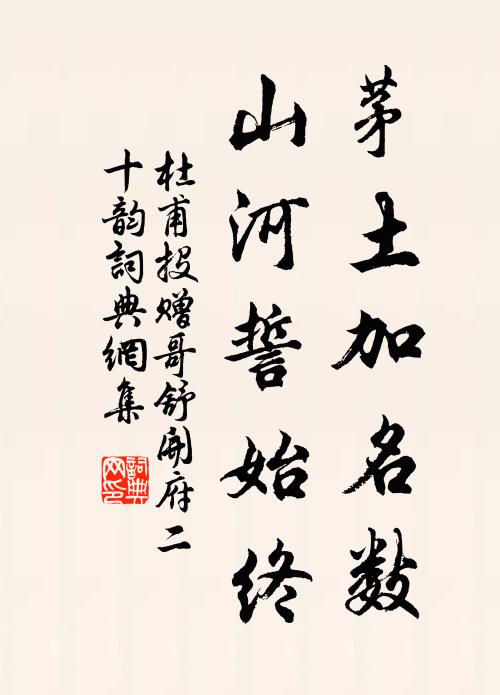 茅土加名数
山河誓始终
杜甫投赠哥舒開府二
十韵詞典網集
詞典网印